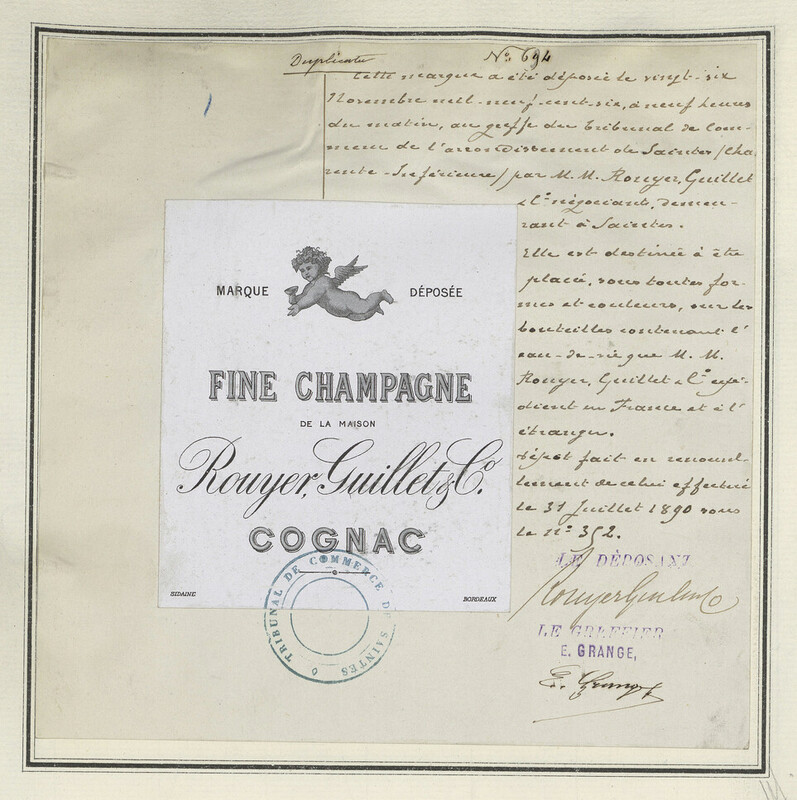 Duplicata
No. 694
Cette marque a été déposée le vingt-six
Novembre mil-neuf-cent-six, à neuf heures
du matin, au greffe du Tribunal de Com-
merce de l'arrondissement de Saintes (Cha
rente-Inférieure) par M.M. Rouyer, Guillet
& Co négociants, demeu-
rant à Saintes.
Elle est destinée à être
placée, sous toutes for-
mes et couleurs, sur les
bouteilles contenant l'
eau-de-vie que M.M.
Rouyer, Guillet & Co expé-
dient en France et à l'
étranger.
Dépôt fait en renouvel-
lement de celui effectué
le 31 Juillet 1890 sous
le No 352.
MARQUE DÉPOSÉE
FINE CHAMPAGNE
DE LA MAISON
Rouyer, Guillet & Co.
COGNAC
SIDAINE BORDEAUX
TRIBUNAL DE COMMERCE DE SAINTES
LE DÉPOSANT
Rouyer Guillet & Co
LE GREFFIER
E. GRANGE,
E. Grange